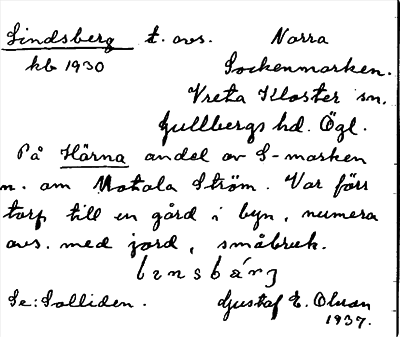 Lindsberg t. avs. Norra
kb 1930 Sockenmarken.
Vreta Kloster sn.
Gullbergs hd. Ögl.
På Härna andel av S-marken
n. om Motala Ström. Var förr
torp till en gård i byn, numera
avs. med jord, småbruk.
Se: Solliden. Gustaf E. Olsson
1937.